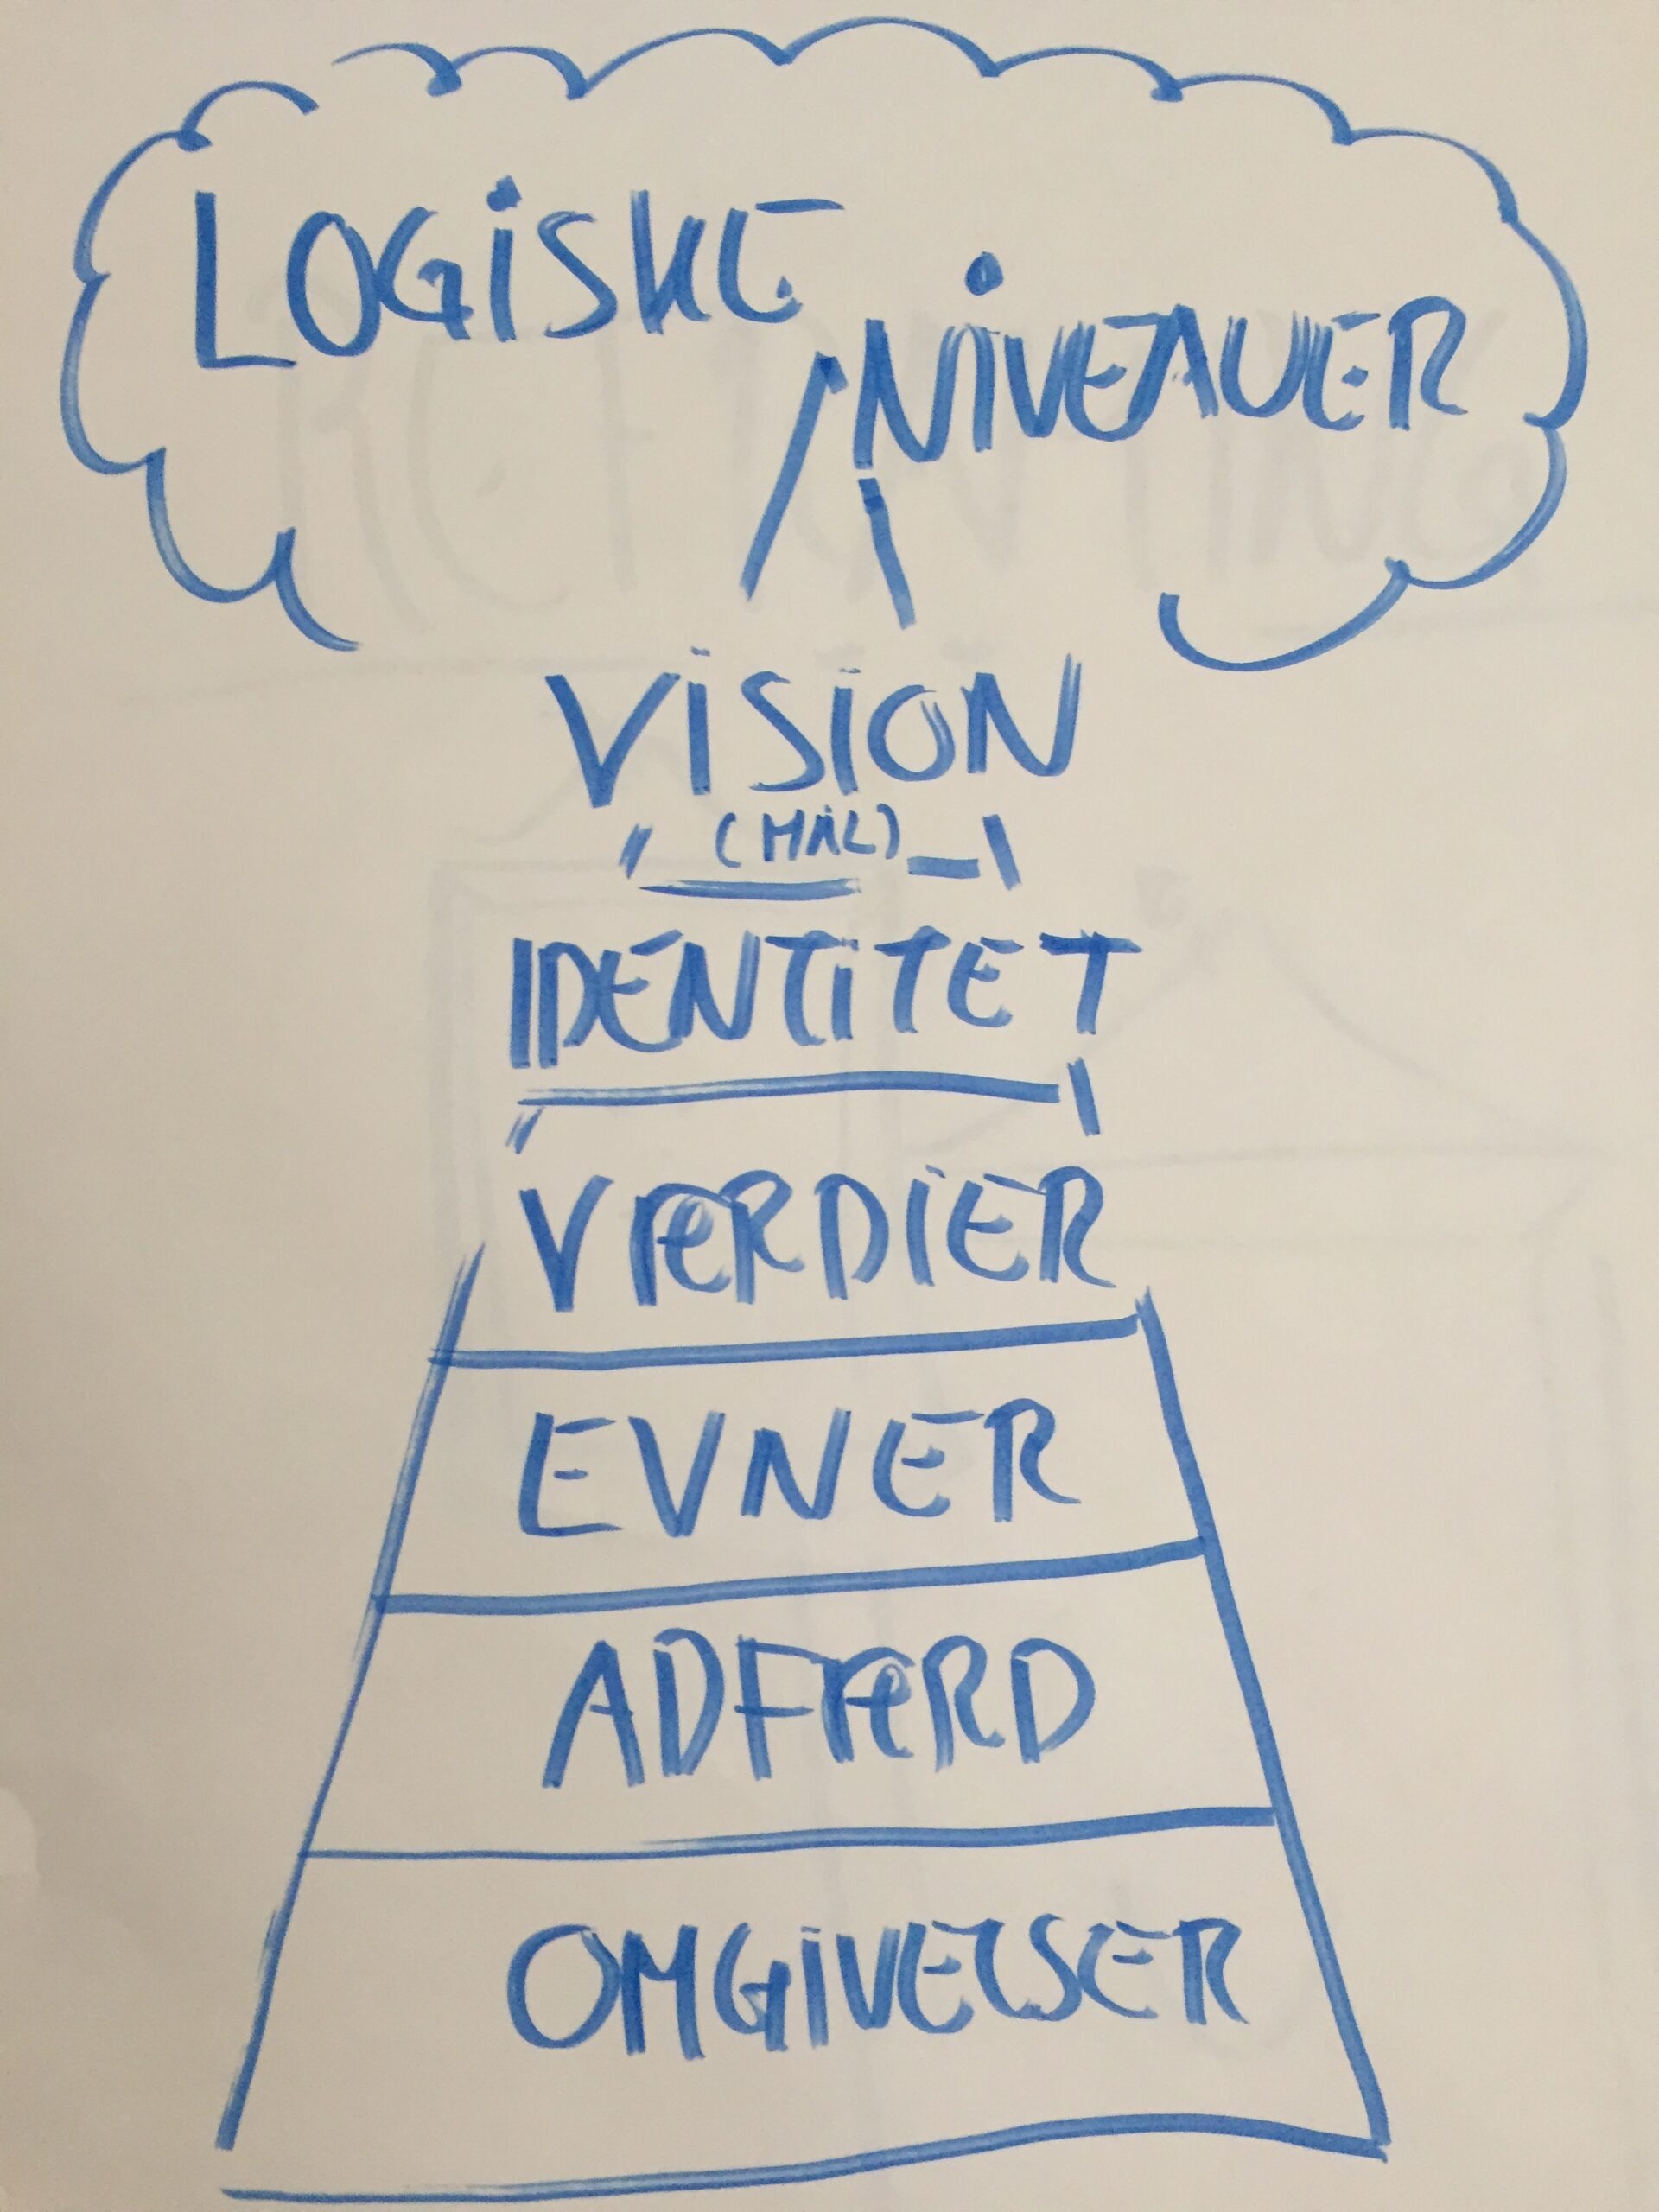 LOGISKE
NIVEAUER
VISION
(MÅL)
IDENTITET
VÆRDIER
EVNER
ADFÆRD
OMGIVELSER